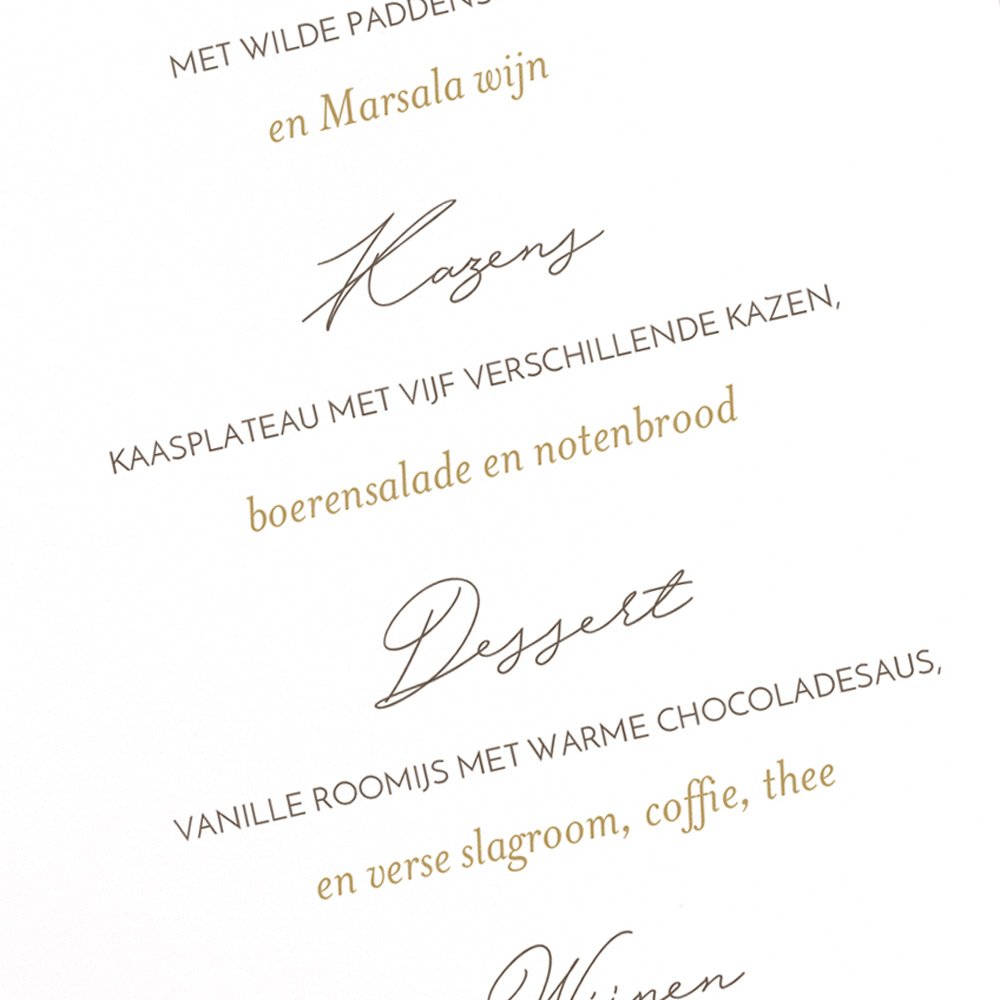 MET WILDE
en Marsala wijn
Kazens
KAASPLATEAU MET VIJF VERSCHILLENDE KAZEN,
boerensalade en notenbrood
Dessert
VANILLE ROOMIJS MET WARME CHOCOLADESAUS,
en verse slagroom, coffie, thee
Wijnen